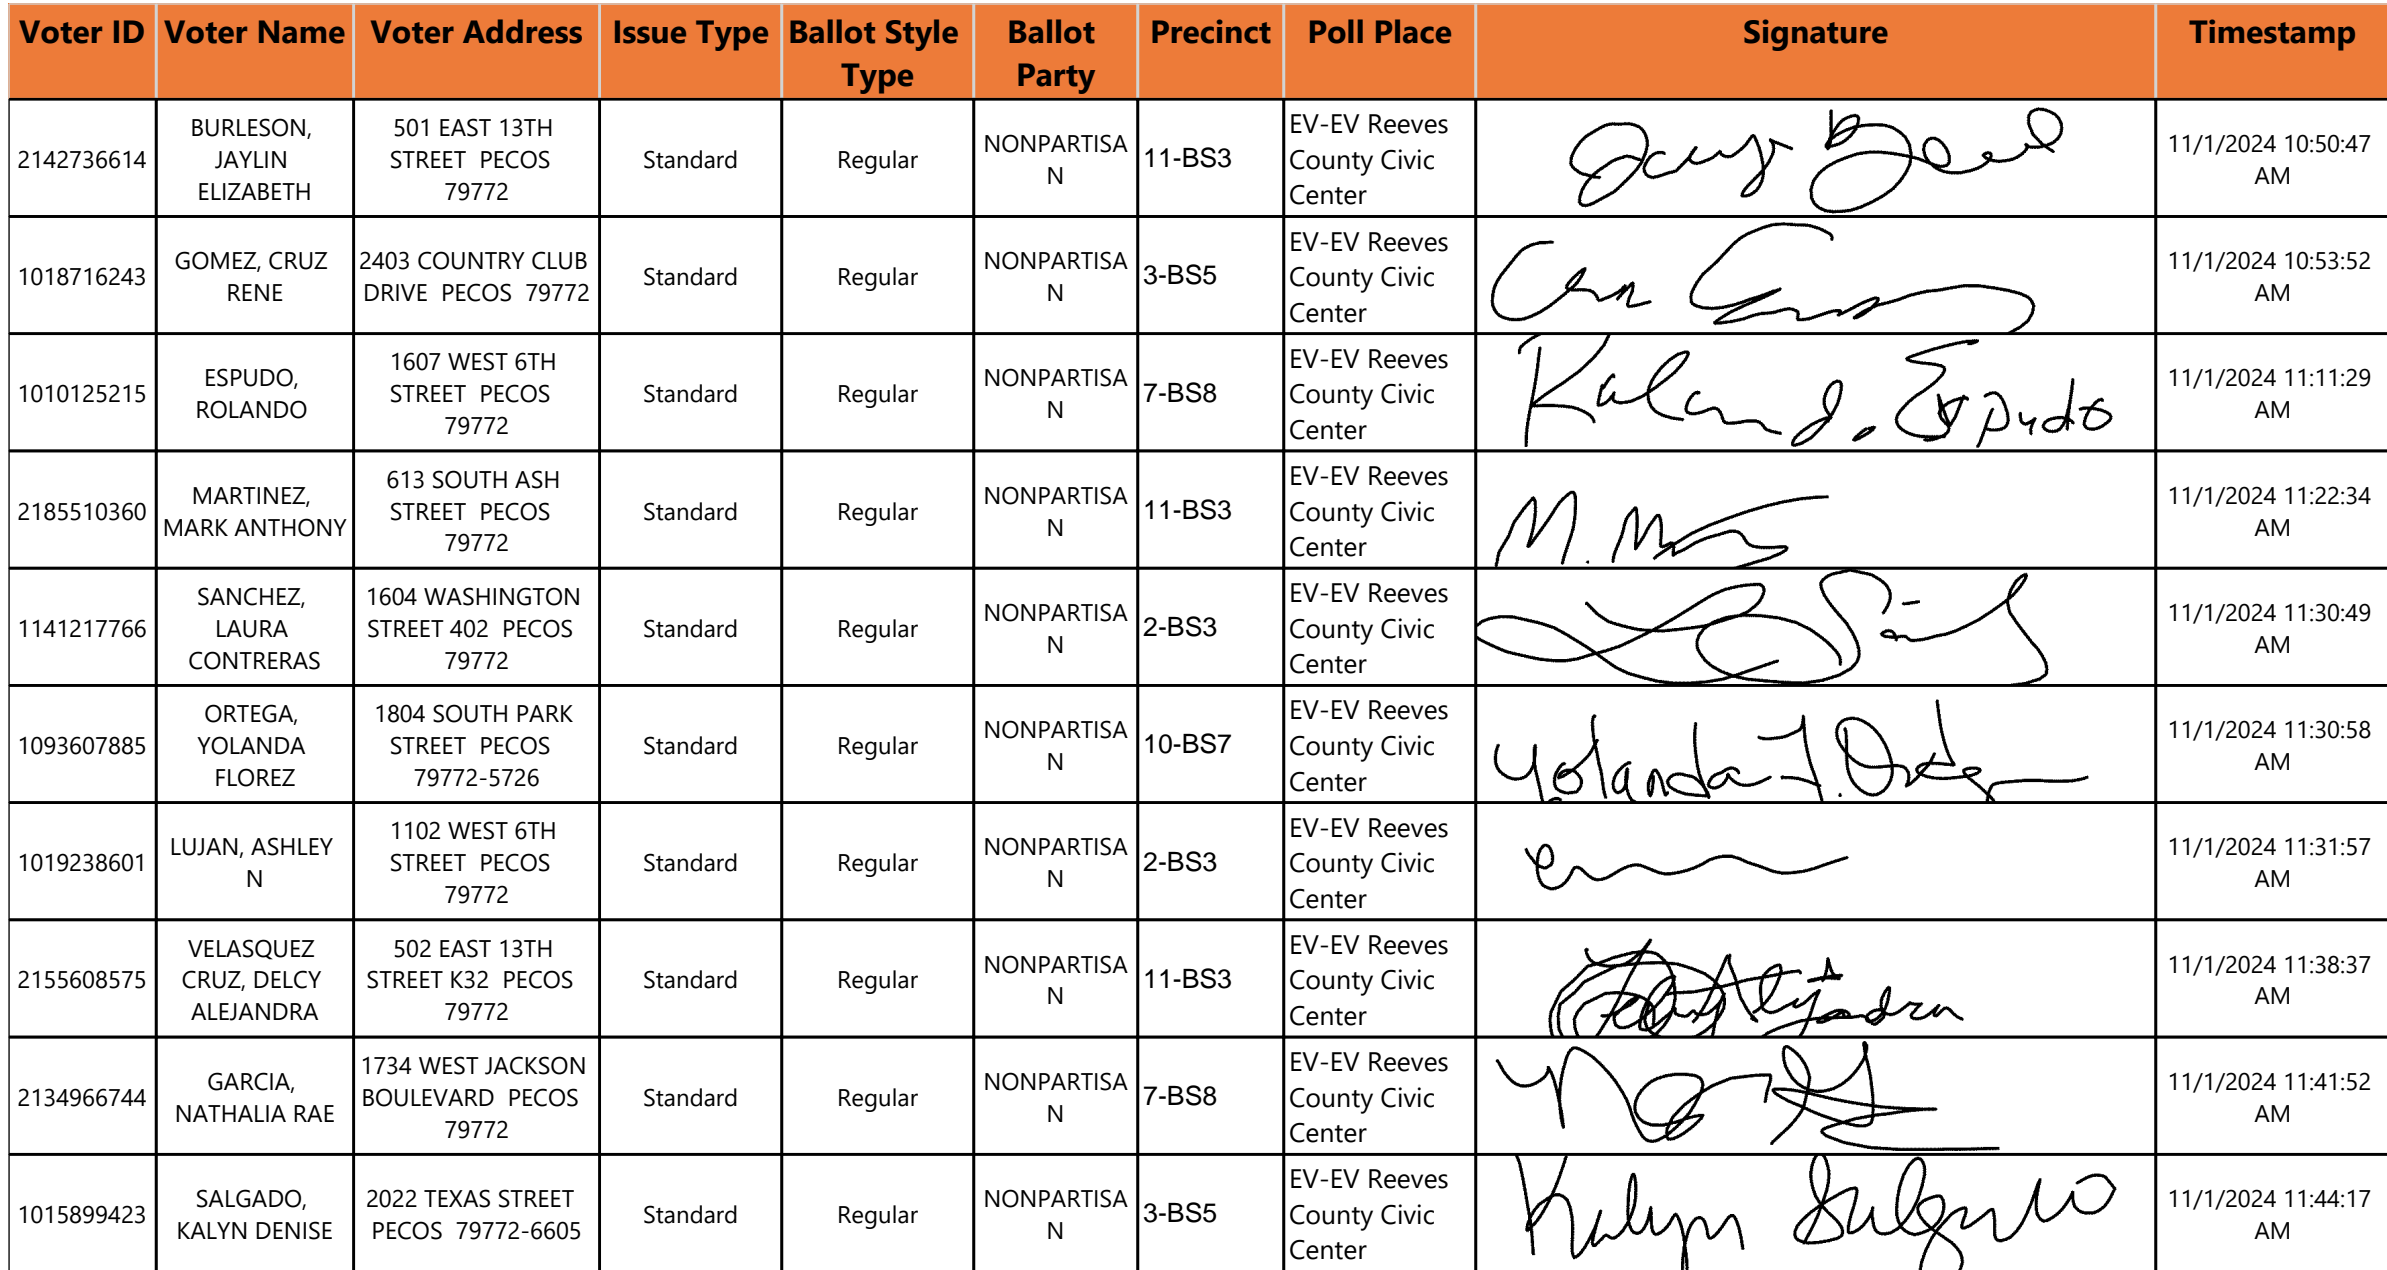 Voter ID Voter Name Voter Address Issue Type Ballot Style Type Ballot Party Precinct Poll Place Signature Timestamp
2142736614 BURLESON, JAYLIN ELIZABETH 501 EAST 13TH STREET PECOS 79772 Standard Regular NONPARTISAN 11-BS3 EV-EV Reeves County Civic Center 11/1/2024 10:50:47 AM
1018716243 GOMEZ, CRUZ RENE 2403 COUNTRY CLUB DRIVE PECOS 79772 Standard Regular NONPARTISAN 3-BS5 EV-EV Reeves County Civic Center 11/1/2024 10:53:52 AM
1010125215 ESPUDO, ROLANDO 1607 WEST 6TH STREET PECOS 79772 Standard Regular NONPARTISAN 7-BS8 EV-EV Reeves County Civic Center Espudo 11/1/2024 11:11:29 AM
2185510360 MARTINEZ, MARK ANTHONY 613 SOUTH ASH STREET PECOS 79772 Standard Regular NONPARTISAN 11-BS3 EV-EV Reeves County Civic Center M. 11/1/2024 11:22:34 AM
1141217766 SANCHEZ, LAURA CONTRERAS 1604 WASHINGTON STREET 402 PECOS 79772 Standard Regular NONPARTISAN 2-BS3 EV-EV Reeves County Civic Center 11/1/2024 11:30:49 AM
1093607885 ORTEGA, YOLANDA FLOREZ 1804 SOUTH PARK STREET PECOS 79772-5726 Standard Regular NONPARTISAN 10-BS7 EV-EV Reeves County Civic Center Yolanda F. Ortega 11/1/2024 11:30:58 AM
1019238601 LUJAN, ASHLEY N 1102 WEST 6TH STREET PECOS 79772 Standard Regular NONPARTISAN 2-BS3 EV-EV Reeves County Civic Center 11/1/2024 11:31:57 AM
2155608575 VELASQUEZ CRUZ, DELCY ALEJANDRA 502 EAST 13TH STREET K32 PECOS 79772 Standard Regular NONPARTISAN 11-BS3 EV-EV Reeves County Civic Center Alejandra 11/1/2024 11:38:37 AM
2134966744 GARCIA, NATHALIA RAE 1734 WEST JACKSON BOULEVARD PECOS 79772 Standard Regular NONPARTISAN 7-BS8 EV-EV Reeves County Civic Center 11/1/2024 11:41:52 AM
1015899423 SALGADO, KALYN DENISE 2022 TEXAS STREET PECOS 79772-6605 Standard Regular NONPARTISAN 3-BS5 EV-EV Reeves County Civic Center Kalyn Salgado 11/1/2024 11:44:17 AM